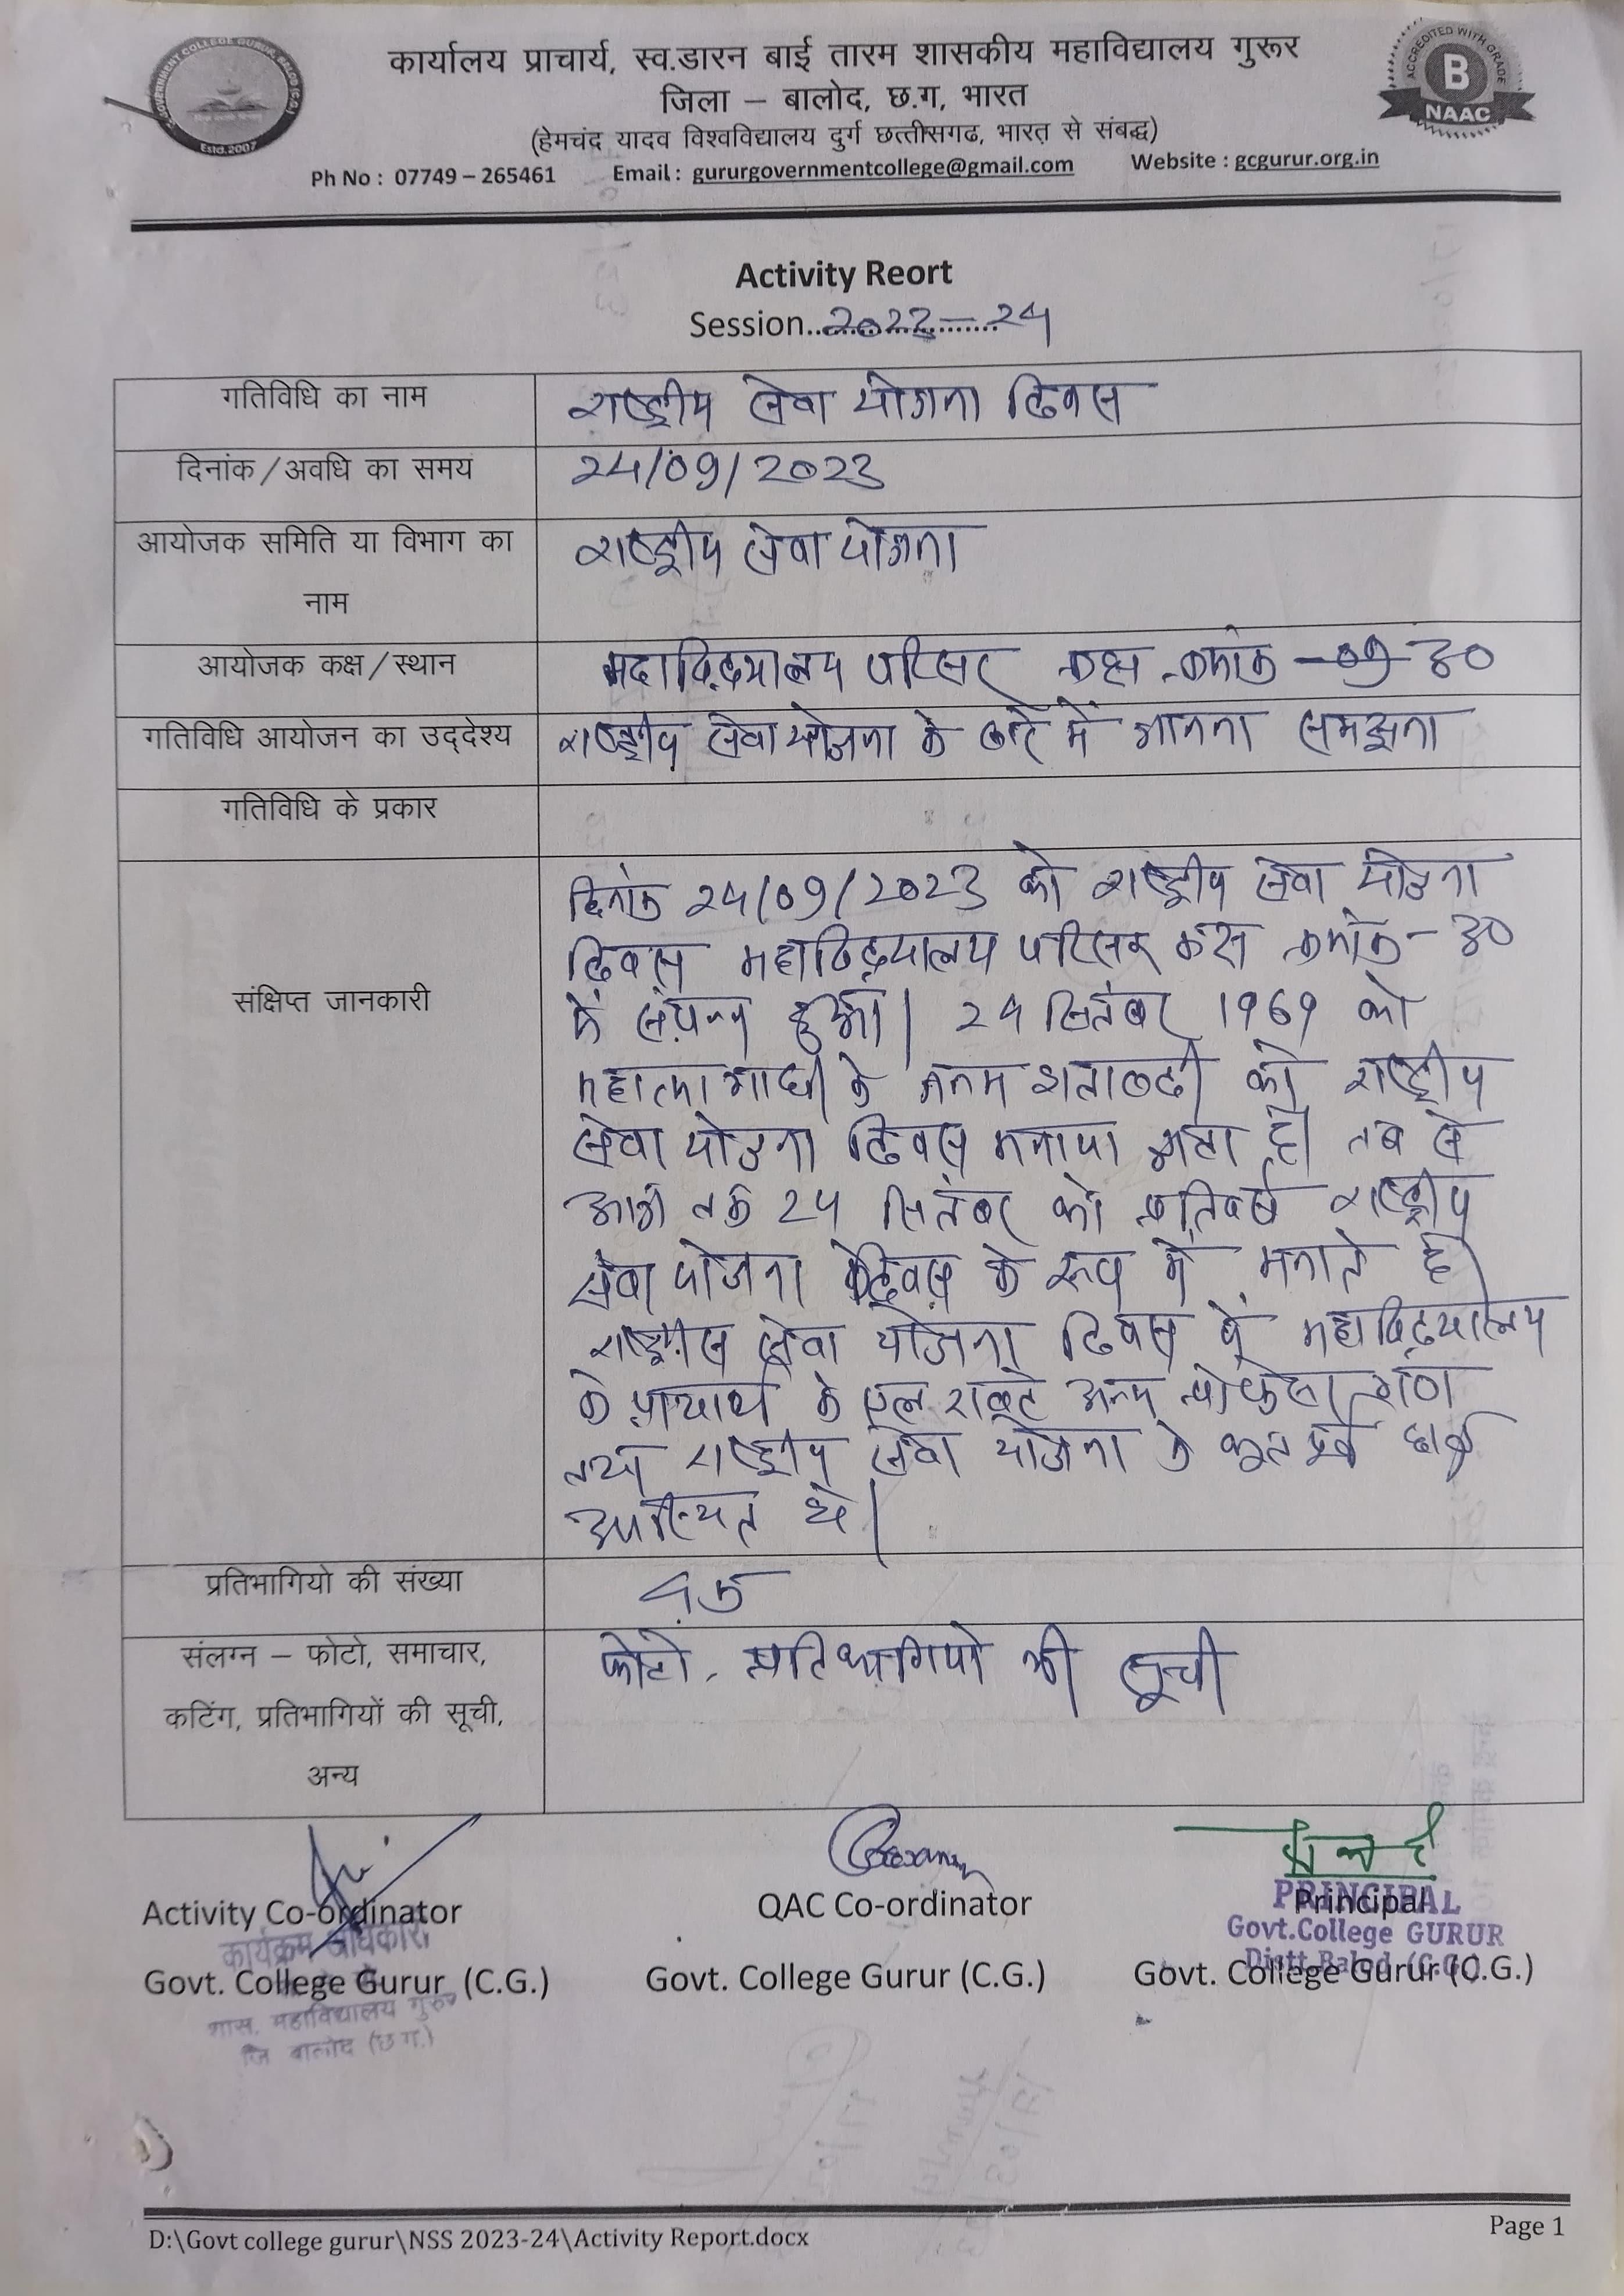 कार्यालय प्राचार्य, स्व.डारन बाई तारम शासकीय महाविद्यालय गुरूर
जिला – बालोद, छ.ग, भारत
(हेमचंद यादव विश्वविद्यालय दुर्ग छत्तीसगढ, भारत से संबद्ध)
Ph No : 07749 – 265461 Email : gururgovernmentcollege@gmail.com Website : gcgurur.org.in
Estd.2007
ACCREDITED WITH GRADE
B
NAAC
Activity Reort
Session 2023-24
गतिविधि का नाम राष्ट्रीय सेवा योजना दिवस
दिनांक/अवधि का समय 24/09/2023
आयोजक समिति या विभाग का राष्ट्रीय सेवा योजना
नाम
आयोजक कक्ष/स्थान महाविद्यालय परिसर कक्ष क्रमांक - 09 30
गतिविधि आयोजन का उद्देश्य राष्ट्रीय सेवा योजना के बारे में जानना समझना
गतिविधि के प्रकार
संक्षिप्त जानकारी
दिनांक 24/09/2023 को राष्ट्रीय सेवा योजना
दिवस महाविद्यालय परिसर कक्ष क्रमांक - 30
में संपन्न हुआ। 24 सितंबर 1969 को
महात्मा गाधी के जन्म शताब्दी को राष्ट्रीय
सेवा योजना दिवस मनाया जाता है। तब से
आज तक 24 सितंबर को प्रतिवर्ष राष्ट्रीय
सेवा योजना दिवस के रूप में मनाते है।
राष्ट्रीय सेवा योजना दिवस में महाविद्यालय
के प्राचार्य के एल रावटे अन्य गण
तथा राष्ट्रीय सेवा योजना के भूतपूर्व छात्र
उपस्थित थे।
प्रतिभागियो की संख्या
संलग्न – फोटो, समाचार, फोटो, प्रतिभागियो की सूची
कटिंग, प्रतिभागियों की सूची,
अन्य
Activity Co-ordinator QAC Co-ordinator Principal
Govt. College Gurur (C.G.) Govt. College Gurur (C.G.) Govt. College Gurur (C.G.)
कार्यक्रम अधिकारी
शास. महाविद्यालय गुरुर
जि बालोद (छ ग.)
PRINCIPAL
Govt.College GURUR
Distt.Balod (C.G.)
D:\Govt college gurur\NSS 2023-24\Activity Report.docx Page 1